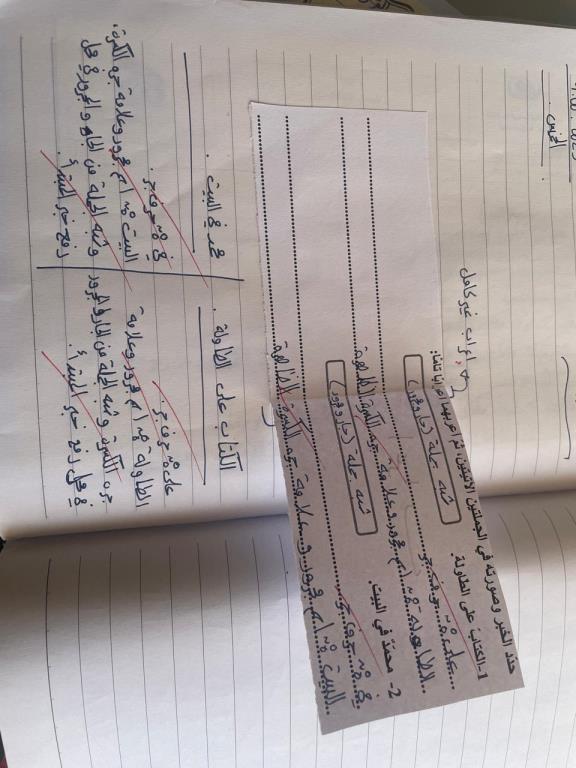 حدّد الخبر وصورته في الجملتين الآتيتين، ثم أعربهما إعرابًا تامًا:
1- الكتابُ على الطاولة. شبه جملة (جار ومجرور)
على: حرف جر
الطاولة: اسم مجرور وعلامة جره الكسرة الظاهرة
2- محمدٌ في البيت. شبه جملة (جار ومجرور)
في: حرف جر
البيت: اسم مجرور وعلامة جره الكسرة الظاهرة
إعراب غير كامل
محمد في البيت.
في: حرف جر.
البيت: اسم مجرور وعلامة جره الكسرة.
وشبه الجملة من الجار والمجرور في محل
رفع خبر المبتدأ.
الكتاب على الطاولة.
على: حرف جر.
الطاولة: اسم مجرور وعلامة
جره الكسرة وشبه الجملة من الجار والمجرور
في محل رفع خبر المبتدأ.